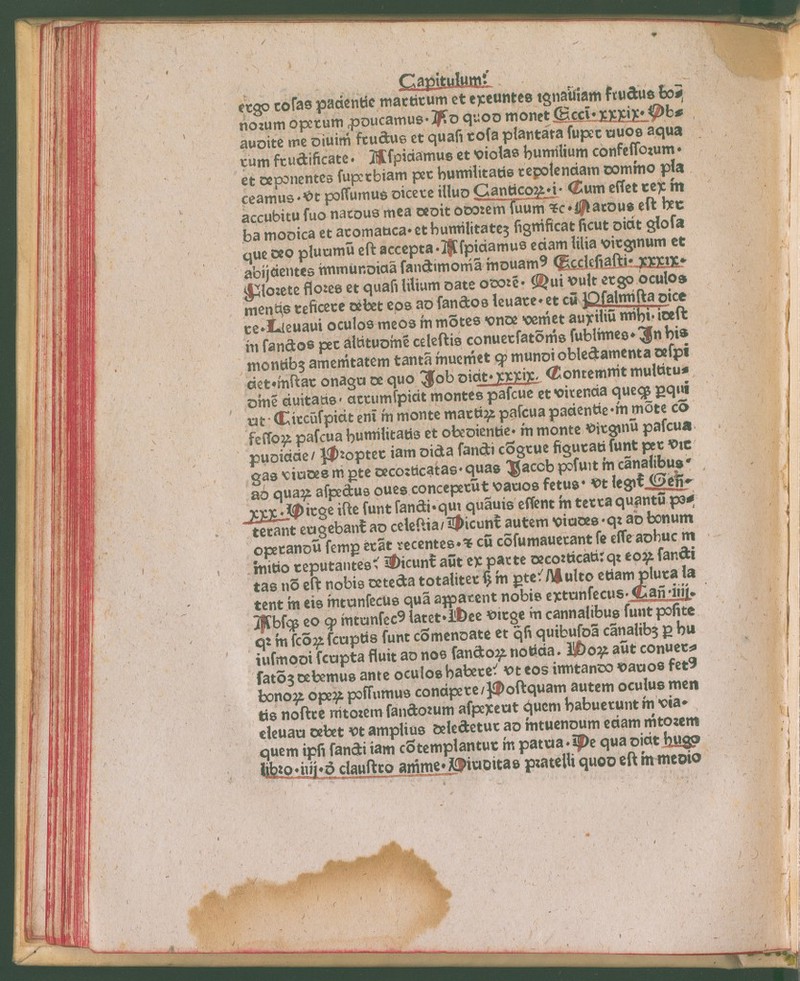 Capitulum:
ergo rosas pacientie martirum et exeuntes ignauiam fructus bo⸗
noꝛum operum ꝓducamus. Ad quod monet Ecci̅. xxxix. Ob⸗
audite me diuini̅ fructus et quasi rosa plantata super riuos aqua
rum fructificate. Aspiciamus et violas humilium confessoꝛum.
et deponentes superbiam per humilitatis repolendam domino pla
ceamus. vt possumus dicere illud Canticoꝝ. i. Cum esset rex in
accubitu suo nardus mea dedit odoꝛem suum ⁊c. Nardus est her
ba modica et aromatica. et humilitateꝫ significat sicut dicit glosa
que deo plurimu̅ est accepta. Aspiciamus eciam lilia virginum et
abijcientes immundicia̅ sanctimonia̅ induamꝰ Ecclesiasti. xxxix.
Floꝛete floꝛes et quasi lilium date odoꝛe̅. Qui vult ergo oculos
mentis reficere debet eos ad sanctos leuare. et cu̅ Psalmista dice
re. Leuaui oculos meos in mo̅tes vnde veniet auxiliu̅ mihi. idest
in sanctos per altitudine̅ celestis conuersato̅nis sublimes. In his
montibꝫ amenitatem tanta̅ inueniet ꝙ mundi oblectamenta despi
ciet. instar onagri de quo Job dicit. xxxix. Contemnit multitu⸗
dine̅ ciuitatis. circumspicit montes pascue et virencia queqꝫ ꝑqui
rit. Circu̅spicit eni̅ in monte martiꝝ pascua paciencie. in mo̅te co̅
fessoꝝ pascua humilitatis et obediencie. in monte virginu̅ pascua
pudicicie / Pꝛopter iam dicta sancti co̅grue figurati sunt per vir
gas virides in ꝑte decoꝛticatas. quas Jacob posuit in ca̅nalibus.
ad quaꝝ aspectus oues conceperu̅t varios fetus. vt legit̅ Gen̅⸗
xxx. Virge iste sunt sancti. qui qua̅uis essent in terra quantu̅ po⸗
terant erigebant̅ ad celestia / Dicunt̅ autem virides. qꝛ ad bonum
operandu̅ semꝑ era̅t recentes. ⁊ cu̅ co̅sumauerant se esse adhuc in
initio reputantes: Dicunt̅ au̅t ex parte decoꝛticati: qꝛ eoꝝ sancti
tas no̅ est nobis detecta totaliter sꝫ in ꝑte: Multo etiam plura la
tent in eis intrinsecus qua̅ apparent nobis extrinsecus. Can̅. iiij.
Absqꝫ eo ꝙ intrinsecꝰ latet. Hee virge in cannalibus sunt posite
qꝛ in sco̅ꝝ scriptis sunt co̅mendate et q̅si quibusda̅ ca̅nalibꝫ ꝑ hu
iusmodi scripta fluit ad nos sanctoꝝ noticia. Hoꝝ au̅t conuer⸗
sato̅ꝫ debemus ante oculos habere: vt eos imitando varios fetꝰ
bonoꝝ opeꝝ possumus concipere / Postquam autem oculus men
tis nostre nitoꝛem sanctoꝛum aspexerit quem habuerunt in via.
eleuari debet vt amplius delectetur ad intuendum eciam nitoꝛem
quem ipsi sancti iam co̅templantur in patria. De qua dicit hugo
libꝛo. iiij. d̅ claustro anime. Uiuditas pꝛatelli quod est in medio